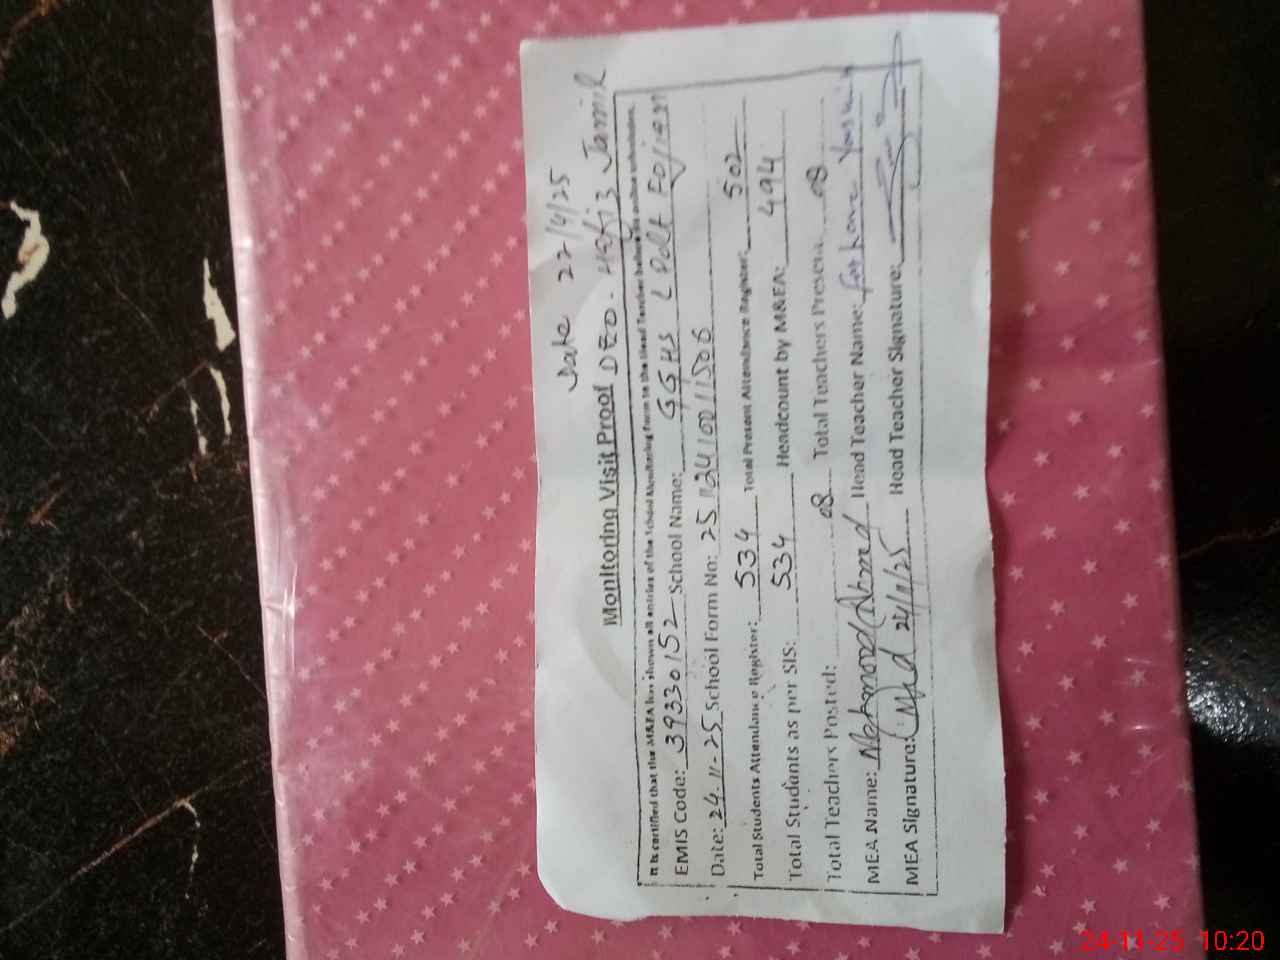 Date 22/4/25
Monitoring Visit Proof DEO. Hafiz Jamil
It is certified that the M&EA has shown all entries of the School Monitoring Form to the Head Teacher before its online submission.
EMIS Code: 39330152 School Name: GGHS L Palt Fojian
Date: 24.11.25 School Form No: 25112410011506
Total Students Attendance Register: 534 Total Present Attendance Register: 502
Total Students as per SIS: 534 Headcount by M&EA: 494
Total Teachers Posted: 08 Total Teachers Present: 08
MEA Name: Mehmood Ahmed Head Teacher Name: Yasmin
MEA Signature: 24/11/25 Head Teacher Signature:
24-11-25 10:20